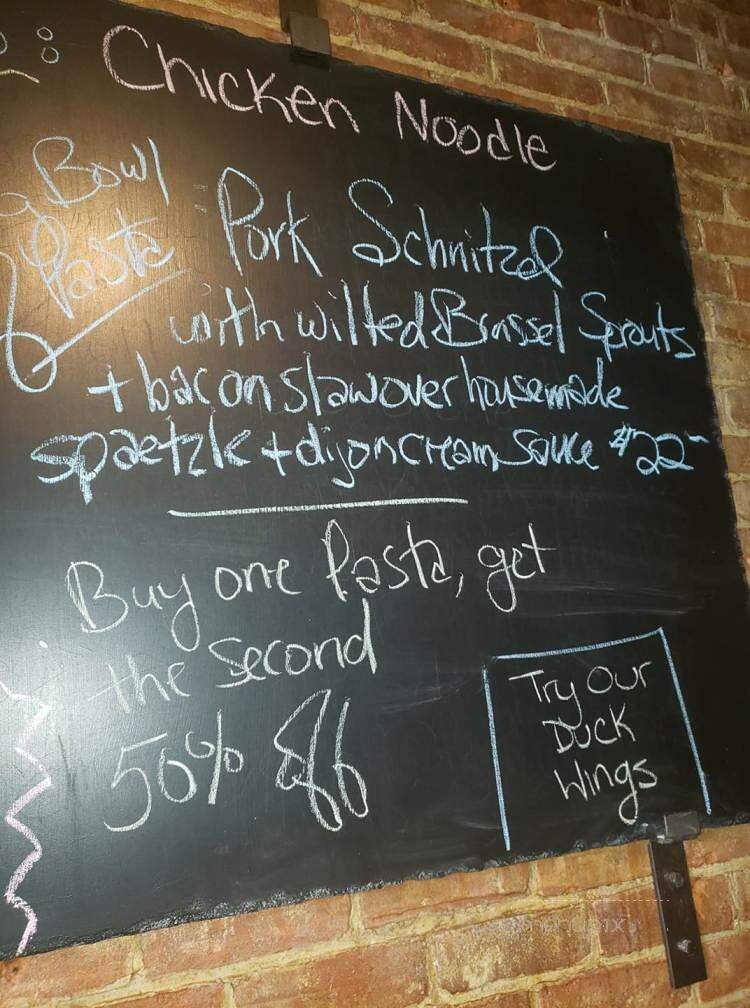 : Chicken Noodle
Bowl
Pasta : Pork Schnitzel
with wilted Brussel Sprouts
+ bacon slaw over housemade
spaetzle + dijon cream sauce $22-
Buy one Pasta, get
the second
50% off
Try Our
Duck
Wings